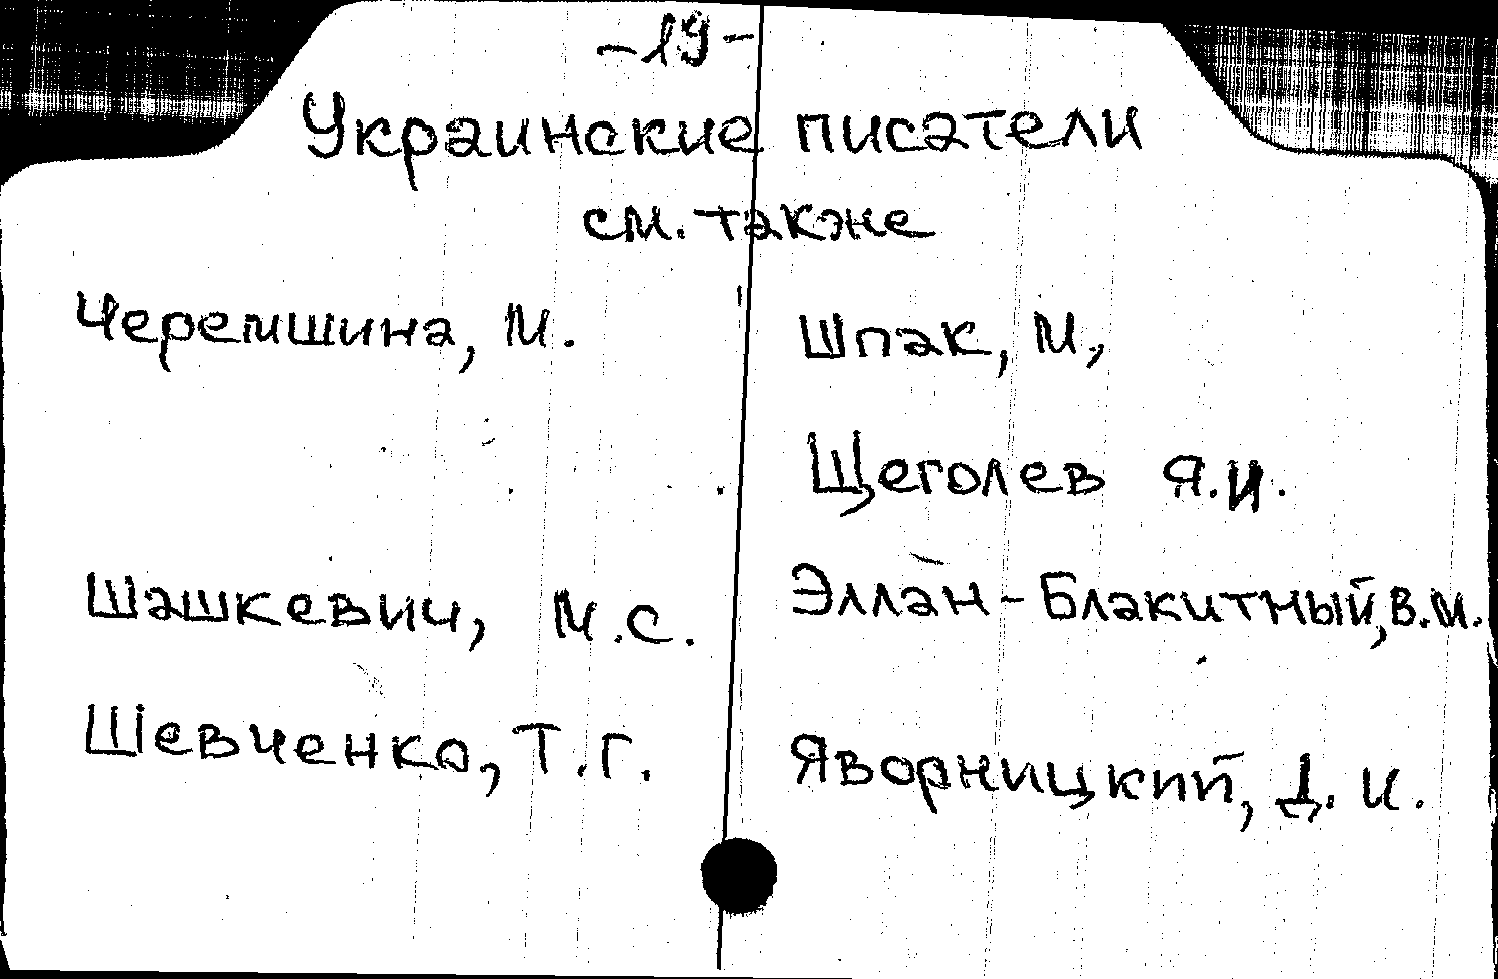 -19-
Украинские писатели
см. также
Черемшина, М.
Шашкевич, М.С.
Шевченко, Т.Г.
Шпак, М,
Щеголев Я.И.
Эллан-Блакитный, В.М.
Яворницкий, Д. И.